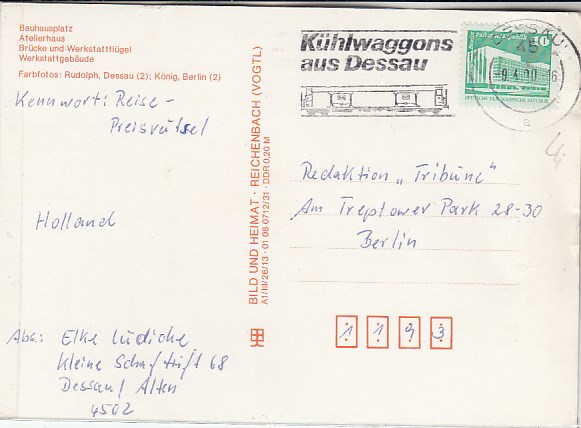 Bauhausplatz
Atelierhaus
Brücke und Werkstattflügel
Werkstattgebäude
Farbfotos: Rudolph, Dessau (2); König, Berlin (2)
Kennwort: Reise-
Preisrätsel
Holland
Abs.: Elke Lüdicke
Kleine Schaftrift 68
Dessau/Alten
4502
BILD UND HEIMAT · REICHENBACH (VOGTL)
A1/III/26/13 · 01 08 0712/31 · DDR 0,20 M
Kühlwaggons
aus Dessau
DESSAU
45
10
Redaktion „Tribüne"
Am Treptower Park 28-30
Berlin
1 1 9 3